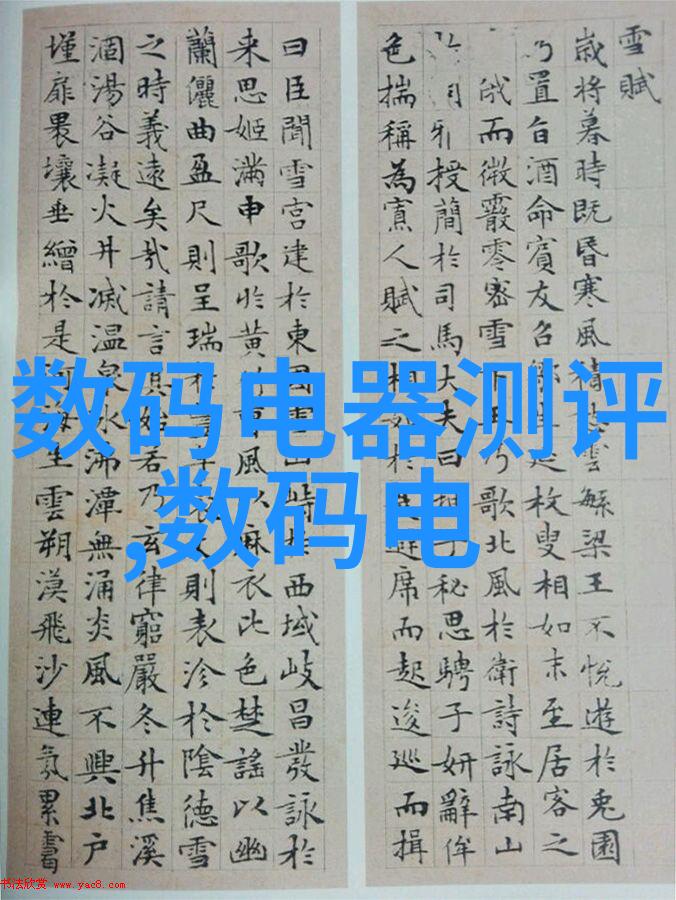 雪賦
歲將暮時既昏寒風積愁雲繁梁王不悅遊於兔園
乃置旨酒命賓友召鄒生延枚叟相如末至居客之
俄而微霰零密雪下王乃歌北風於衛詩詠南山
雅授簡於司馬大夫曰抽子秘思騁子妍辭侔
色揣稱為寡人賦之相如於是避席而起逡巡而揖
曰臣聞雪宮建於東國雪山峙於西域岐昌發詠於
来思姬滿申歌於黃竹曹風以麻衣比色楚謠以幽
蘭儷曲盈尺則呈瑞於豐年袤丈則表沴於陰德雪
之時義遠矣哉請言其始若乃玄律窮嚴冬升焦溪
涸湯谷凝火井滅溫泉冰沸潭無涌炎風不興北户
墐扉壤垂繒於是河海生雲朔漠飛沙連氛累靄
数码电器测评
,数码电
书法欣赏 www.yac8.com